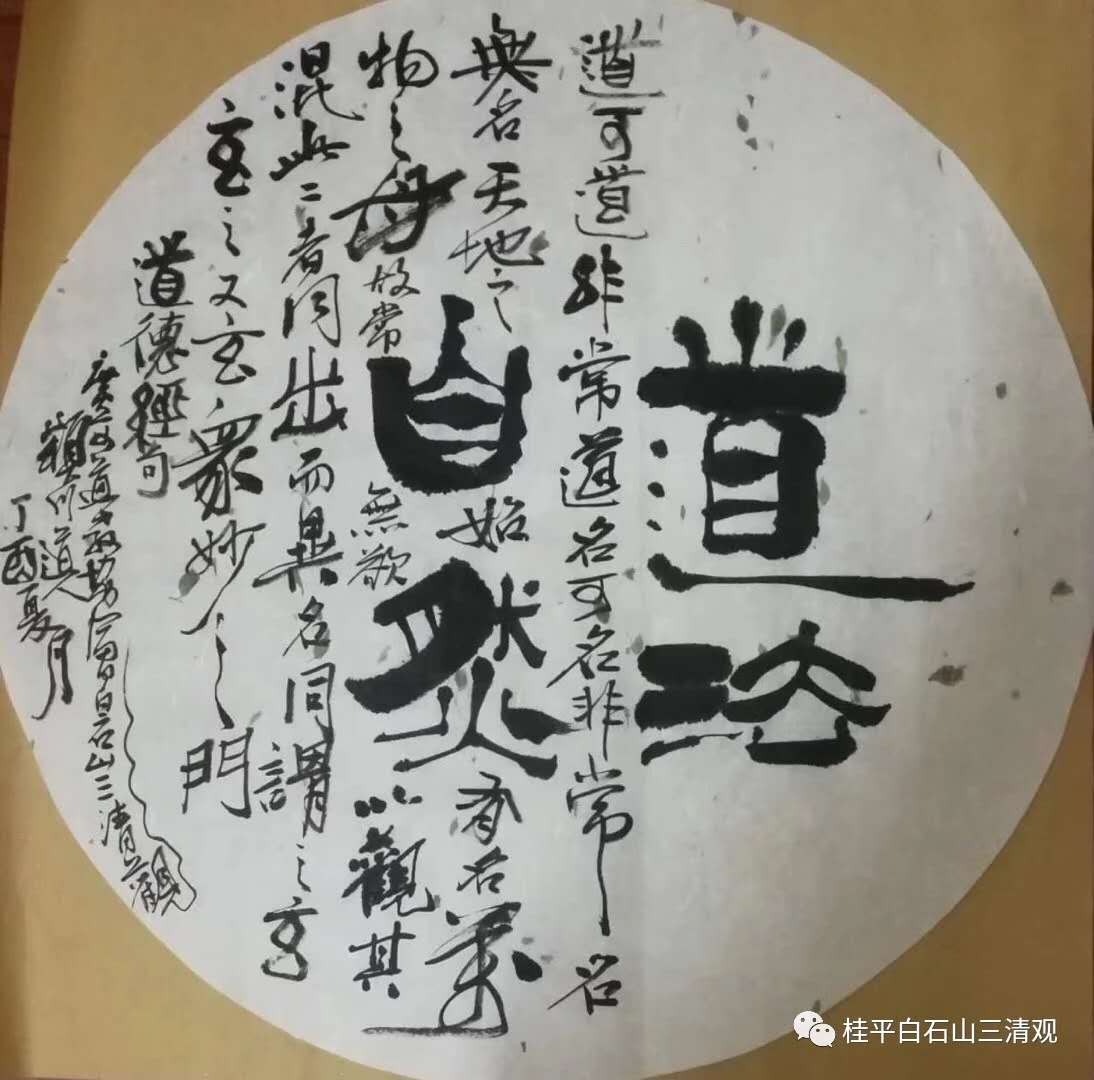 道法
自然
道可道非常道名可名非常名
無名天地之始有名萬
物之母故常無欲以觀其
混此二者同出而異名同謂之玄
玄之又玄眾妙之門
道德經句
道教勝富白石山三清觀
道人
丁酉夏月
桂平白石山三清观